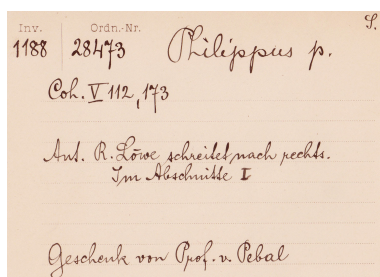 Inv. Ordn.-Nr. S.
1188 28473 Philippus p.
Coh. V 112, 173
Ant. R. Löwe schreitet nach rechts.
Im Abschnitte I
Geschenk von Prof. v. Pebal